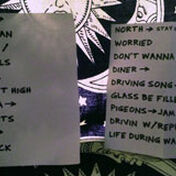 AN
/
LS
T HIGH
A →
TS
CK
NORTH → STAY
WORRIED
DON'T WANNA
DINER →
DRIVING SONG →
GLASS BE FILLE
PIGEONS → JAM
DRIVIN W/REP
LIFE DURING WA